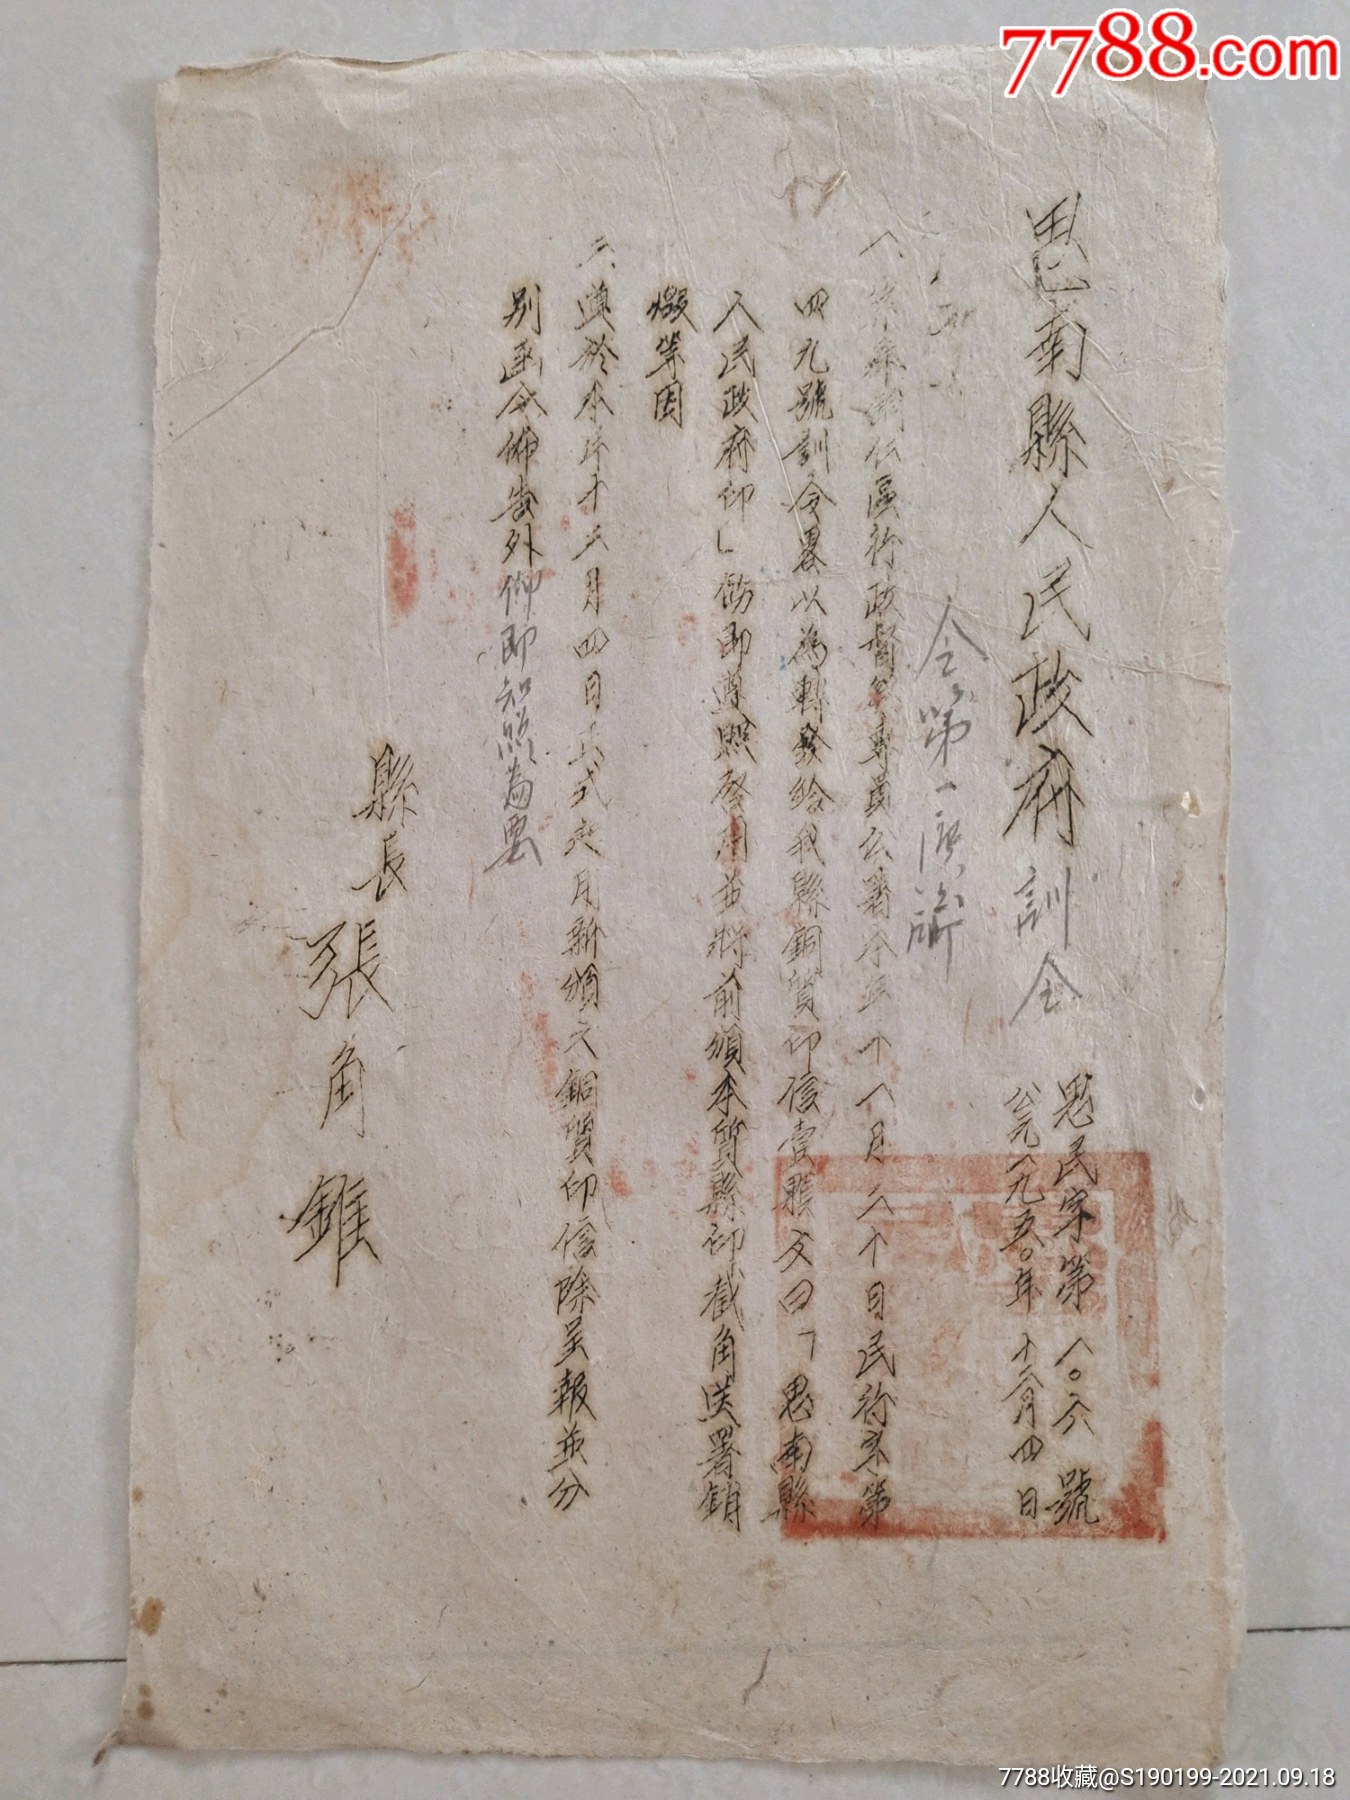 7788.com
思南縣人民政府訓令
思民字第一〇六號
公元一九五〇年十二月四日
令第一
一、案奉銅仁區行政督察專員公署本年十一月二十日民行字第
四九號訓令畧以為轉發給我縣銅質印信壹顆文曰「思南縣
人民政府印」飭即遵照啓用並將前頒木質縣印截角送署銷
繳等因
二、遵於本年十二月四日正式啟用新頒之銅質印信除呈報並分
別函令佈告外仰即知照為要
縣長 張角錐
7788收藏@S190199-2021.09.18